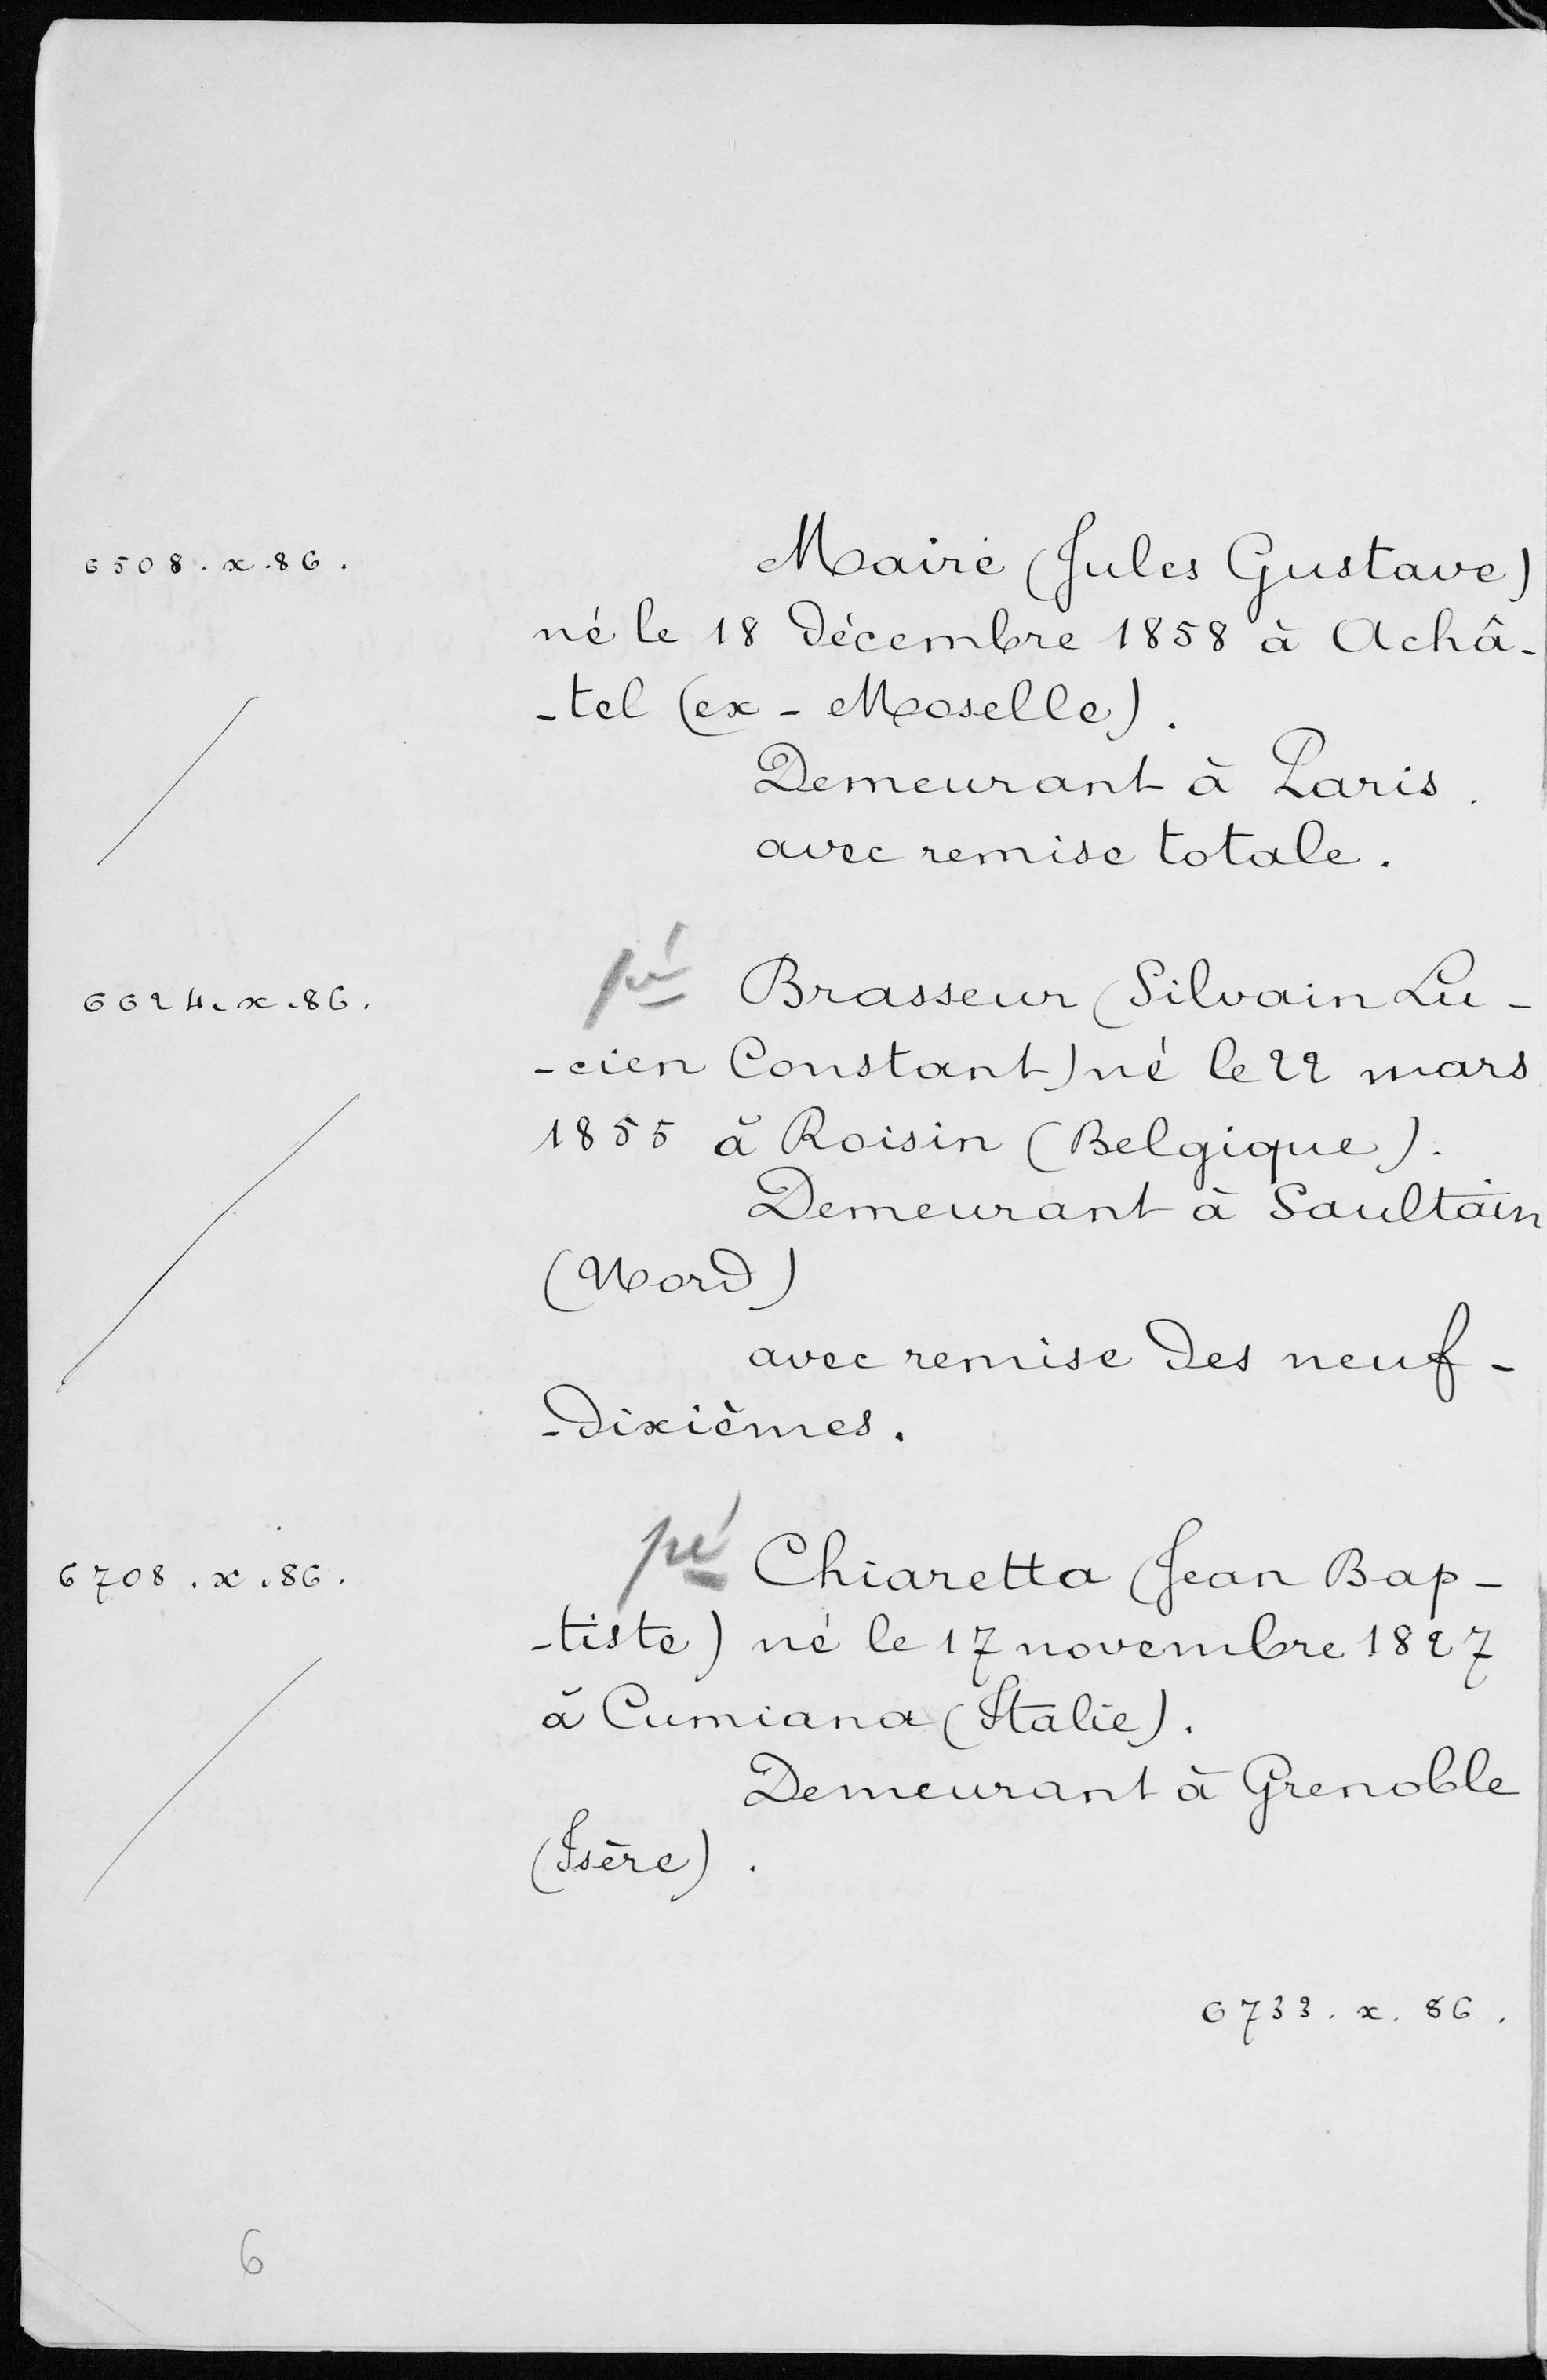 6508.x.86.
Mairé (Jules Gustave)
né le 18 décembre 1858 à Achâ-
-tel (ex-Moselle).
Demeurant à Paris.
avec remise totale.
6624.x.86.
pé Brasseur (Silvain Lu-
-cien Constant) né le 22 mars
1855 à Roisin (Belgique).
Demeurant à Saultain
(Nord)
avec remise des neuf-
-dixièmes.
6708.x.86.
pé Chiaretta (Jean Bap-
-tiste) né le 17 novembre 1827
à Cumiana (Italie).
Demeurant à Grenoble
(Isère).
6733.x.86.
6